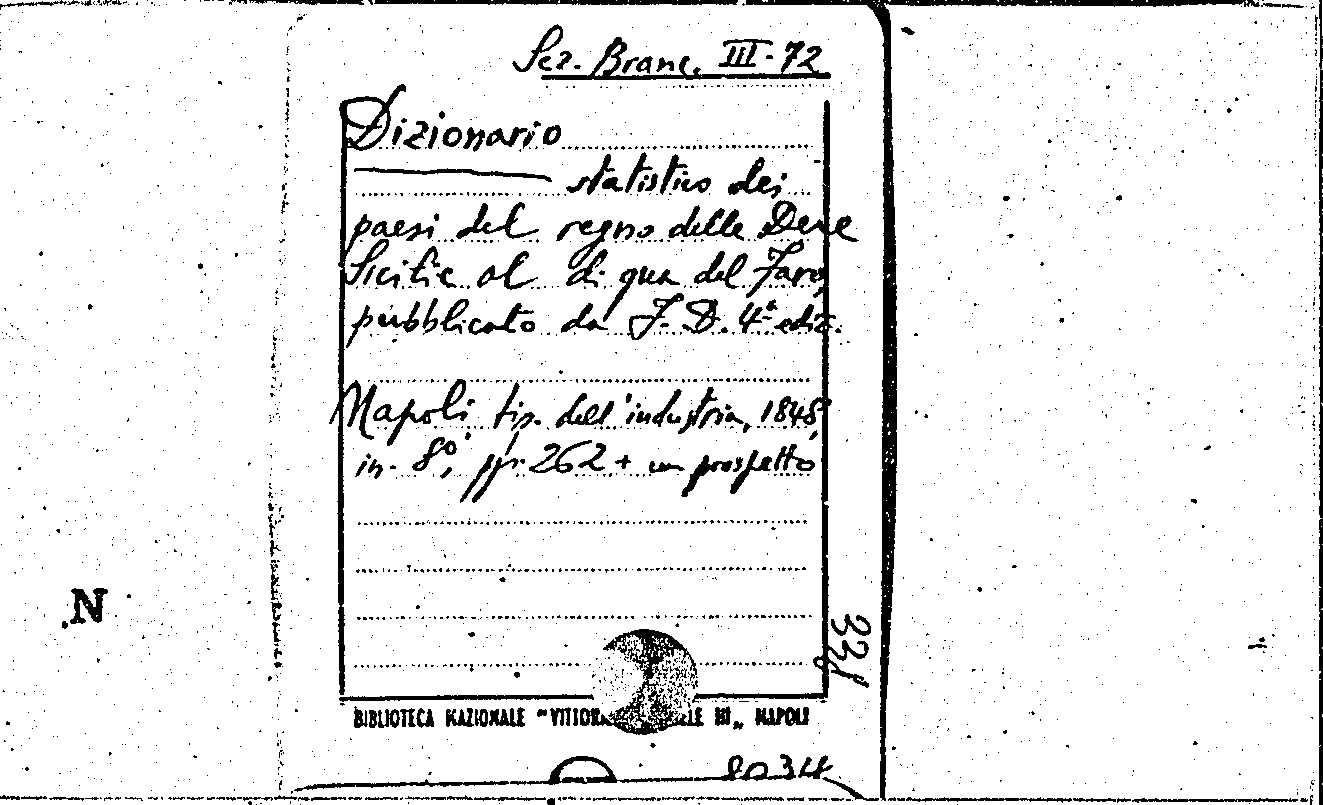 Sez. Branc. III-72
Dizionario
statistico dei
paesi del regno delle Due
Sicilie al di qua del Faro,
pubblicato da F. D. 4ª ediz.
Napoli tip. dell'industria, 1848,
in-8°, pp. 262 + un prospetto
BIBLIOTECA NAZIONALE "VITTOR LE III„ NAPOLI
N